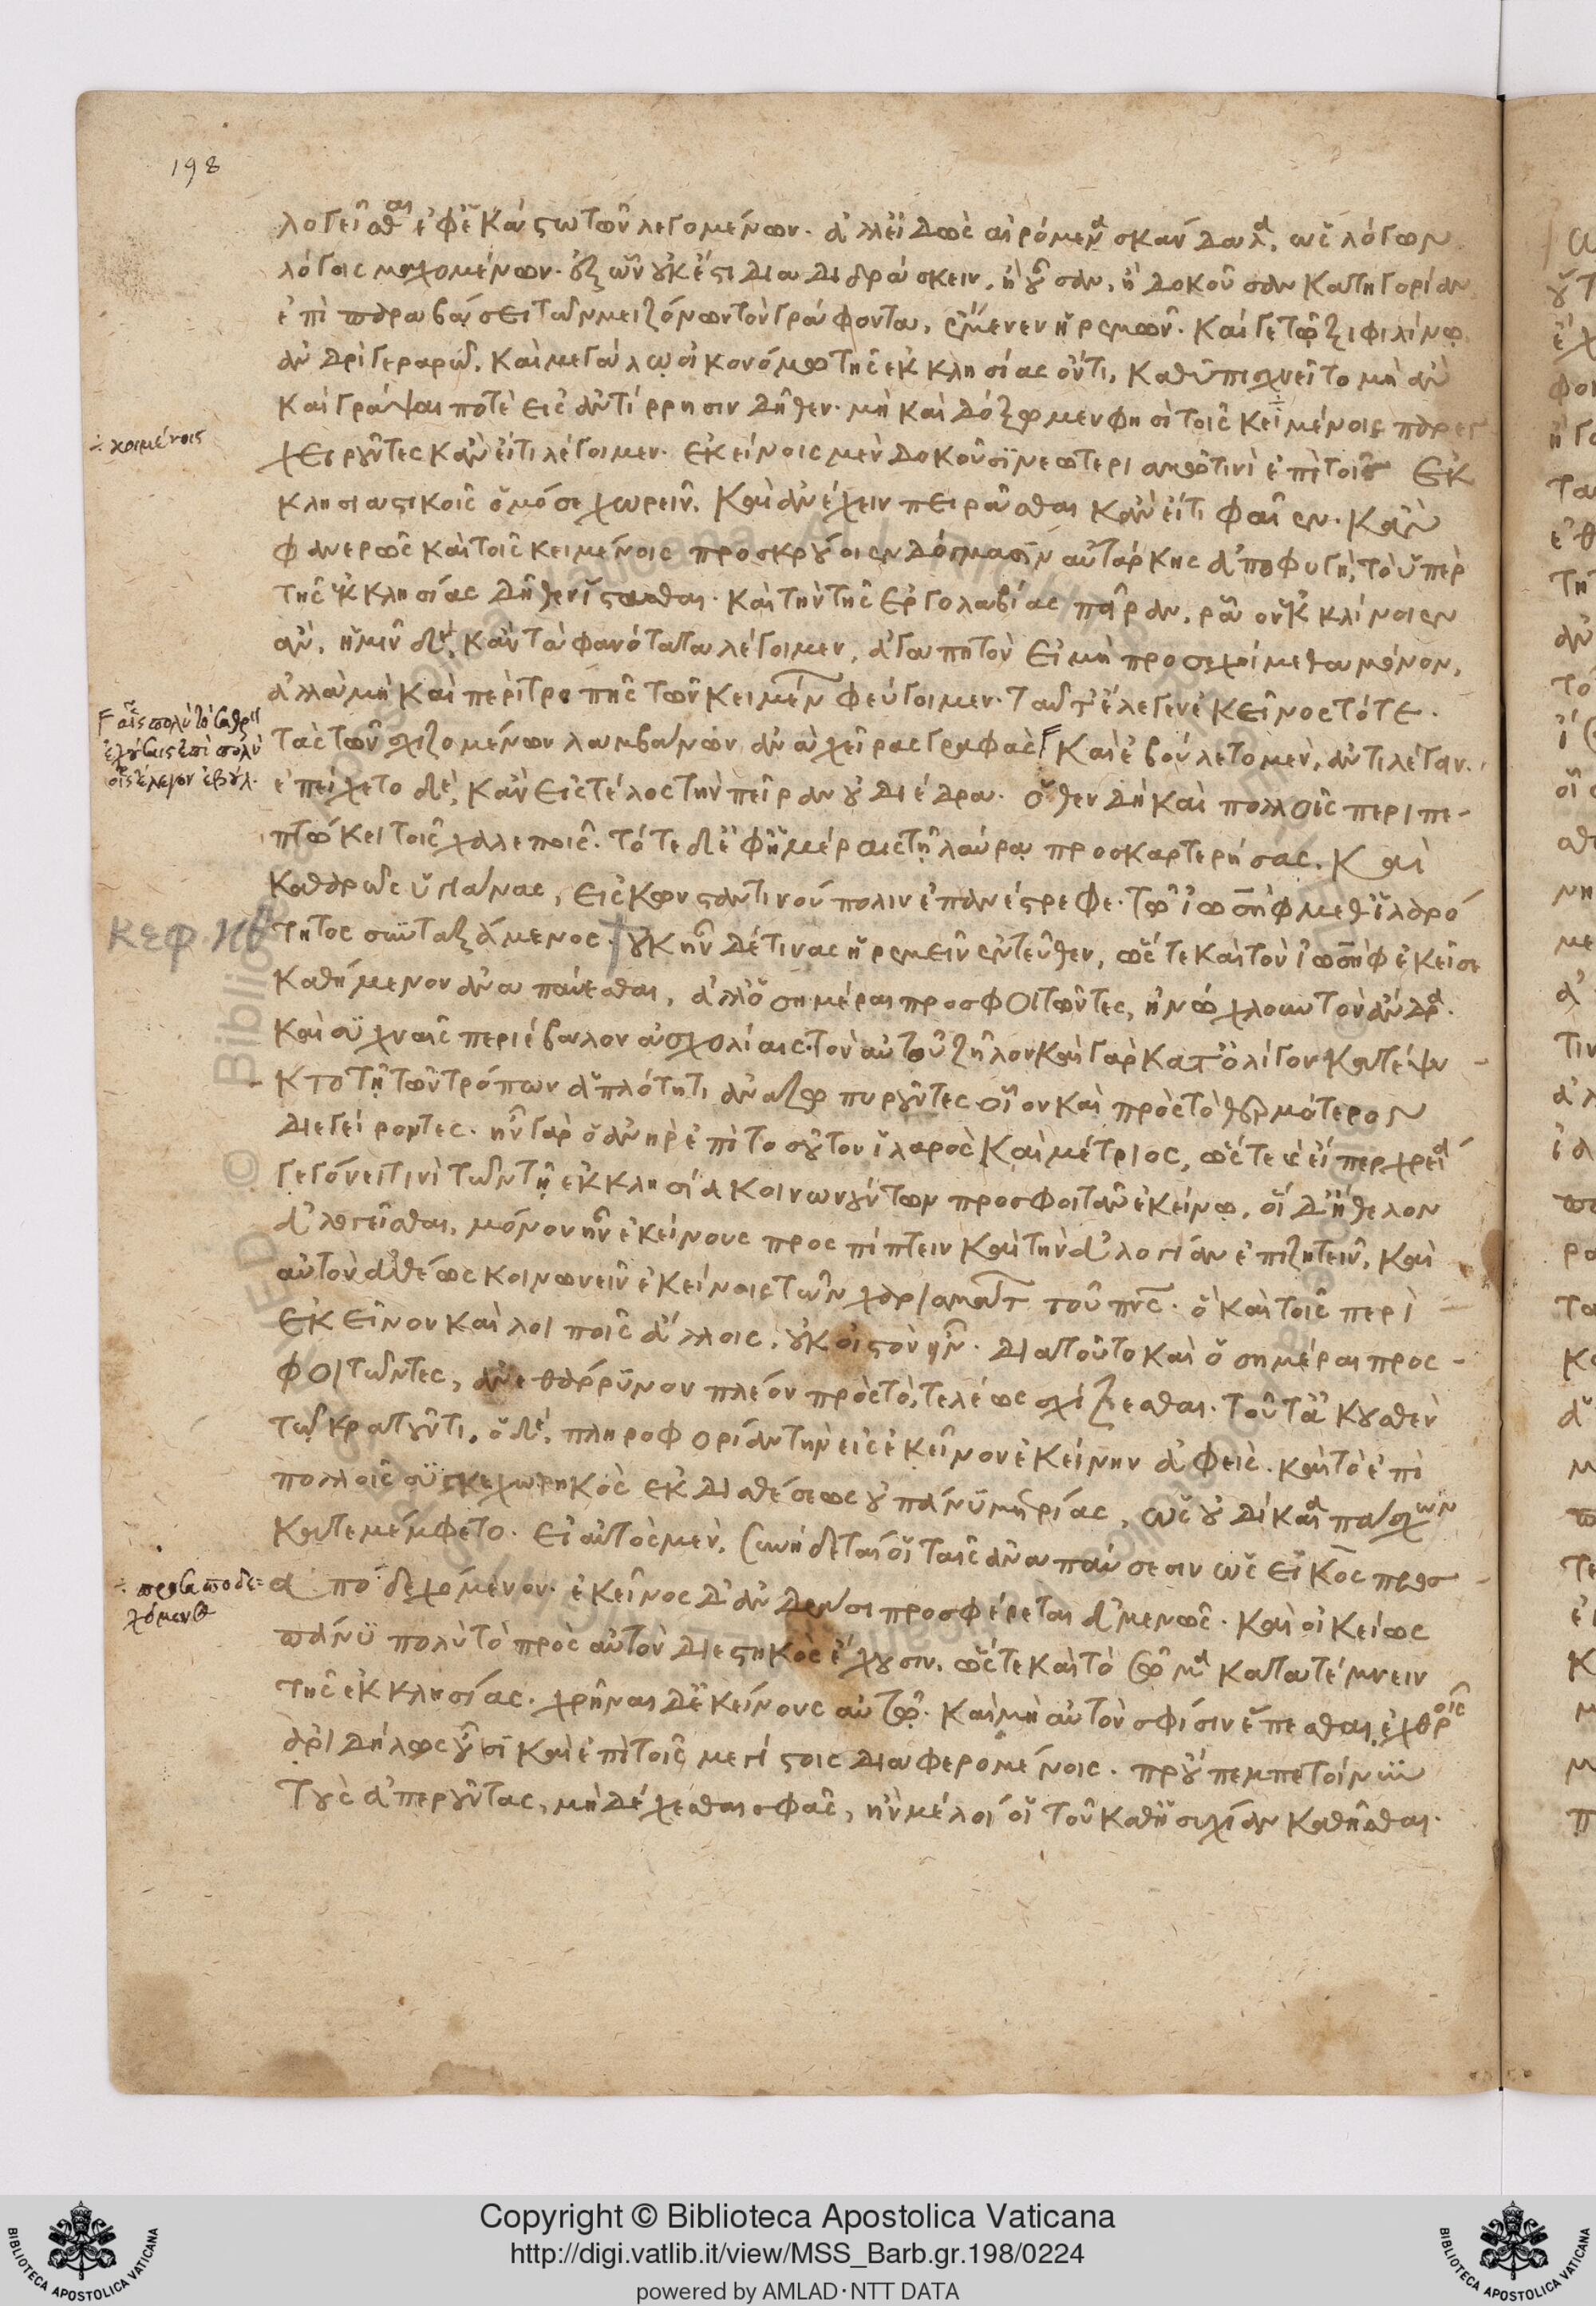 198
λογεῖσθαι ἐφ' ἑκάστω τῶν λεγομένων. ἀλλ' εἰδὼς αἰρόμενα σκάνδαλα, ὡς λόγων
λόγοις μαχομένων. ἐξ ὧν οὐκ ἔστι διαδιδράσκειν, ἢ οὖσαν, ἢ δοκοῦσαν κατηγορίαν
ἐπὶ παραβάσει τῶν μειζόνων τὸν γράφοντα, ἔμενεν ἠρεμῶν. καί γε τῷ ξιφιλίνῳ
ἀνδρὶ γεραρῷ, καὶ μεγάλῳ οἰκονόμῳ τῆς ἐκκλησίας ὄντι, καθυπισχνεῖτο μὴ ἂν
καὶ γράψαι ποτὲ εἰς ἀντίρρησιν δῆθεν. μὴ καὶ δόξωμεν φησὶ τοῖς κειμένοις παρεγ
χειροῦντες κἂν εἴτι λέγοιμεν. ἐκείνοις μὲν δοκοῦσι νεωτερισμῷ τινὶ ἐπὶ τοῖς ἐκ
κλησιαστικοῖς ὁμόσε χωρεῖν, καὶ ἀνέχειν πειρᾶσθαι κἂν εἴτι φαῖεν. κἂν
φανερῶς καὶ τοῖς κειμένοις προσκρούοιεν δόγμασιν αὐτάρκης ἀποφυγὴ, τὸ ὑπὲρ
τῆς ἐκκλησίας δῆθεν ἵστασθαι. καὶ τὴν τῆς ἐργολαβίας πεῖραν, ρᾷον ἐκκλίνοιεν
ἄν. ἡμῖν δὲ, κἂν τὰ φανότατα λέγοιμεν, ἀγαπητὸν εἰ μὴ προσεχοίμεθα μόνον,
ἀλλὰ μὴ καὶ περιτροπῆς τῶν κειμένων φεύγοιμεν. ταῦτ' ἔλεγεν ἐκεῖνος τότε.
τὰς τῶν σχιζομένων λαμβάνων ἀνὰ χεῖρας γραφὰς καὶ ἐβούλετο μὲν, ἀντιλέγειν.
ἐπείχετο δὲ, κἂν εἰς τέλος τὴν πεῖραν οὐ διέδρα. ὅθεν δὴ καὶ πολλοῖς περιπε-
πτώκει τοῖς χαλεποῖς. τότε δ' ἐφ' ἡμέραις τῇ λαύρᾳ προσκαρτερήσας. καὶ
καθαρῶς ὑγιάνας, εἰς κωνσταντινούπολιν ἐπανέστρεφε. τῷ ἰωσὴφ μεθ' ἱλαρό
τητος συνταξάμενος. οὐκ ἦν δέ τινας ἠρεμεῖν ἐντεῦθεν, ὥστε καὶ τὸν ἰωσὴφ ἐκεῖσε
καθήμενον ἀναπαύεσθαι, ἀλλ' ὁσημέραι προσφοιτῶντες, ἠνώχλουν τὸν ἄνδρα.
καὶ συχναῖς περιέβαλον ἀσχολίαις. τὸν αὐτοῦ ζῆλον καὶ γὰρ κατ' ὀλίγον κατεψυ-
κτο τῇ τῶν τρόπων ἁπλότητι ἀναζωπυροῦντες οἷον καὶ πρὸς τὸ θερμότερον
διεγείροντες. ἦν γὰρ ὁ ἀνὴρ ἐπὶ τοσοῦτον ἱλαρὸς καὶ μέτριος, ὥστε καὶ εἴπερ χρεία
γεγόνει τινὶ τῶν τῇ ἐκκλησίᾳ κοινωνούντων προσφοιτᾶν ἐκείνῳ, οἵ δ' ἤθελον
ἀλογεῖσθαι, μόνον ἦν ἐκείνους προσπίπτειν καὶ τὴν ἀλογίαν ἐπιζητεῖν, καὶ
αὐτὸν εὐθέως κοινωνεῖν ἐκείνοις τῶν χαρισμάτων τοῦ πνς. ὃ καὶ τοῖς περὶ
ἐκεῖνον καὶ λοιποῖς ἄλλοις, οὐκ οἰστὸν ἦν. διατοῦτο καὶ ὁσημέραι προς-
φοιτῶντες, ἀνεθάρρυνον πλέον πρὸς τὸ, τελέως σχίζεσθαι. τοῦτ' ἀκουσθὲν
τῷ κρατοῦντι. ὁ δὲ, πληροφορίαν τὴν εἰς ἐκεῖνον ἐκείνην ἀφεὶς. καὶ τὸ ἐπὶ
πολλοῖς συγκεχωρηκὸς ἐκ διαθέσεως οὐ πάνυ μετρίας, ὡς οὐ δίκαια πάσχων
κατεμέμφετο. εἰ αὐτὸς μὲν, συνήδεται οἱ ταῖς ἀναπαύσεσιν ὡς εἰκὸς προσ-
αποδεχόμενον. ἐκεῖνος δ' ἀνδράσι προσφέρεται ἀμενῶς. καὶ οἰκείως
πάνυ πολὺ τὸ πρὸς αὐτὸν διεστηκὸς ἔχουσιν, ὥστε καὶ τὸ σῶμα κατατέμνειν
τῆς ἐκκλησίας. χρῆναι δ' ἐκείνους αὐτῷ. καὶ μὴ αὐτὸν σφίσιν ἕπεσθαι ἐχθροῖς
ἀριδήλως οὖσι καὶ ἐπὶ τοῖς μεγίστοις διαφερομένοις. προὔπεμπε τοίνυν
τοὺς ἀπεροῦντας, μὴ δέχεσθαι σφᾶς, ἢν μέλοι οἱ τοῦ καθ' ἡσυχίαν καθῆσθαι.
κοιμένοις
αἷς πολὺ τὸ θαρρεῖν
ἔχούσαις ἐπὶ πολὺ
οἷς ἔλεγον ἐβούλ.
κεφ. κθ
προσαποδε=
χόμενος
Copyright © Biblioteca Apostolica Vaticana
http://digi.vatlib.it/view/MSS_Barb.gr.198/0224
powered by AMLAD·NTT DATA
BIBLIOTECA APOSTOLICA VATICANA
BIBLIOTECA APOSTOLICA VATICANA